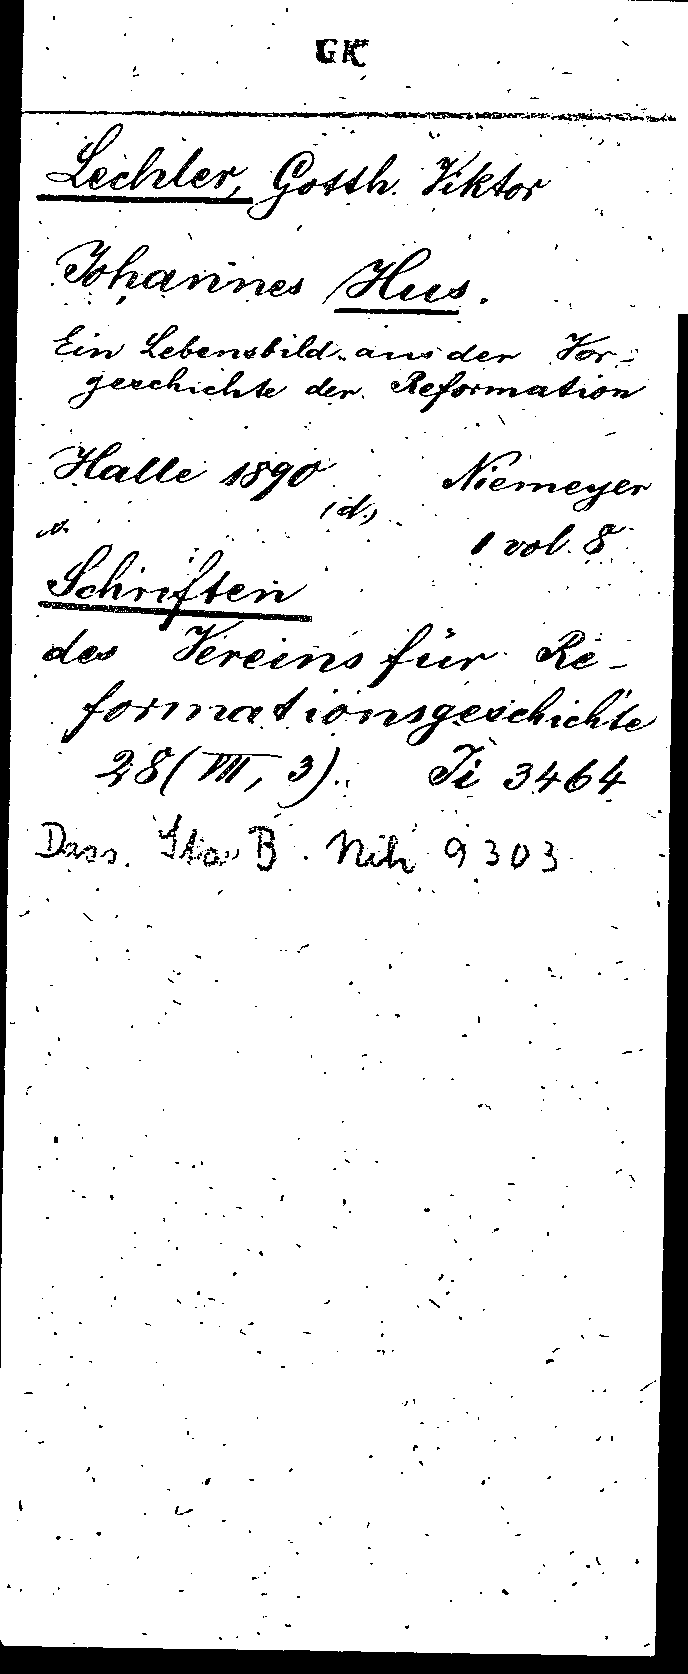 GK
Lechler, Gotth. Viktor
Johannes Hus.
Ein Lebensbild aus der Vor-
geschichte der Reformation
Halle 1890 Niemeyer
(d.)
1 vol. 8
Schriften
des Vereins für Re-
formationsgeschichte
28 (VII, 3). Ti 3464
Dass. Sta B. Nih 9303